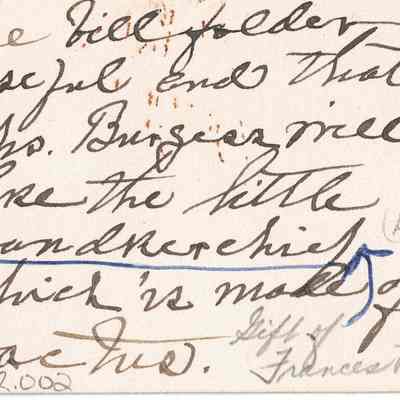 e bill folder
seful end that
rs. Burgess will
ke the little
andkerchief
hich is made of
actus.
Gift of
Frances
2.002